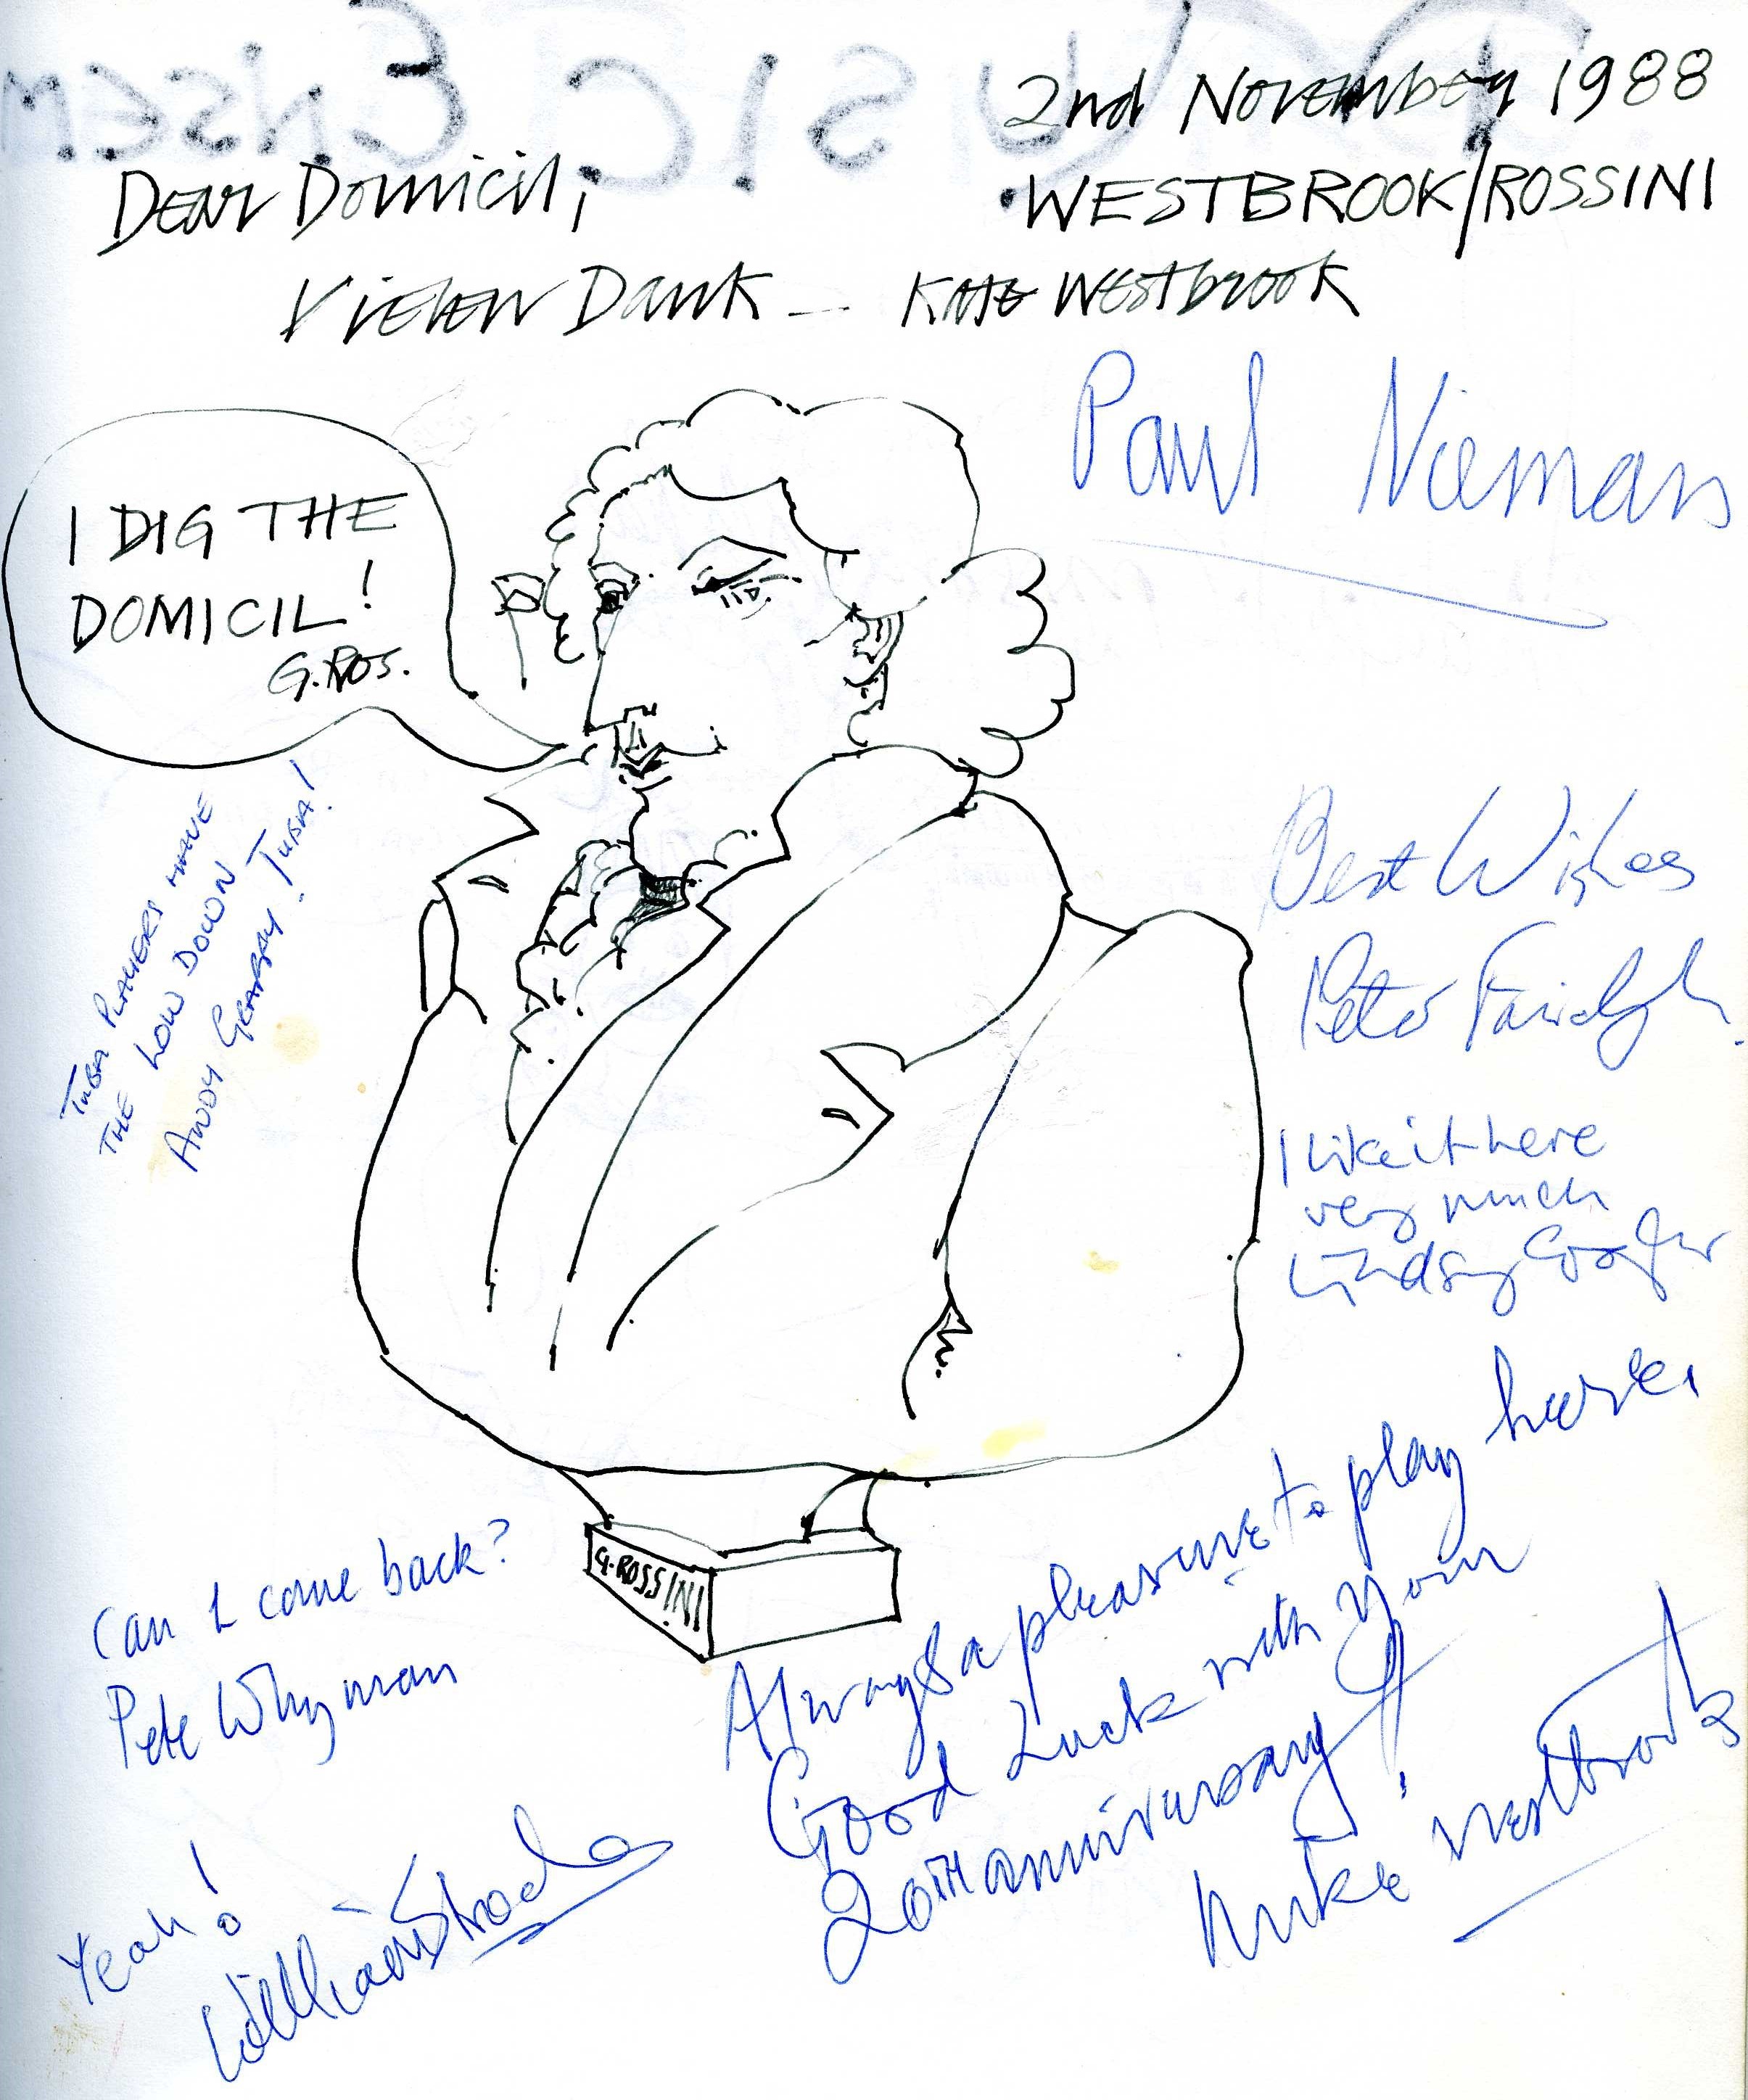 2nd November 1988
Dear Domicil,
WESTBROOK/ROSSINI
Vielen Dank - Kate Westbrook
Paul Nieman
I DIG THE
DOMICIL!
G.ROS.
TUBA PLAYERS HAVE
THE LOW DOWN
ANDY GRAPPY. TUBA!
Best Wishes
Peter Fairclough
I like it here
very much
Lindsay Cooper
G.ROSSINI
Can I come back?
Pete Whyman
Always a pleasure to play here.
Good Luck with your
20TH anniversary!
Mike Westbrook
Yeah!
William